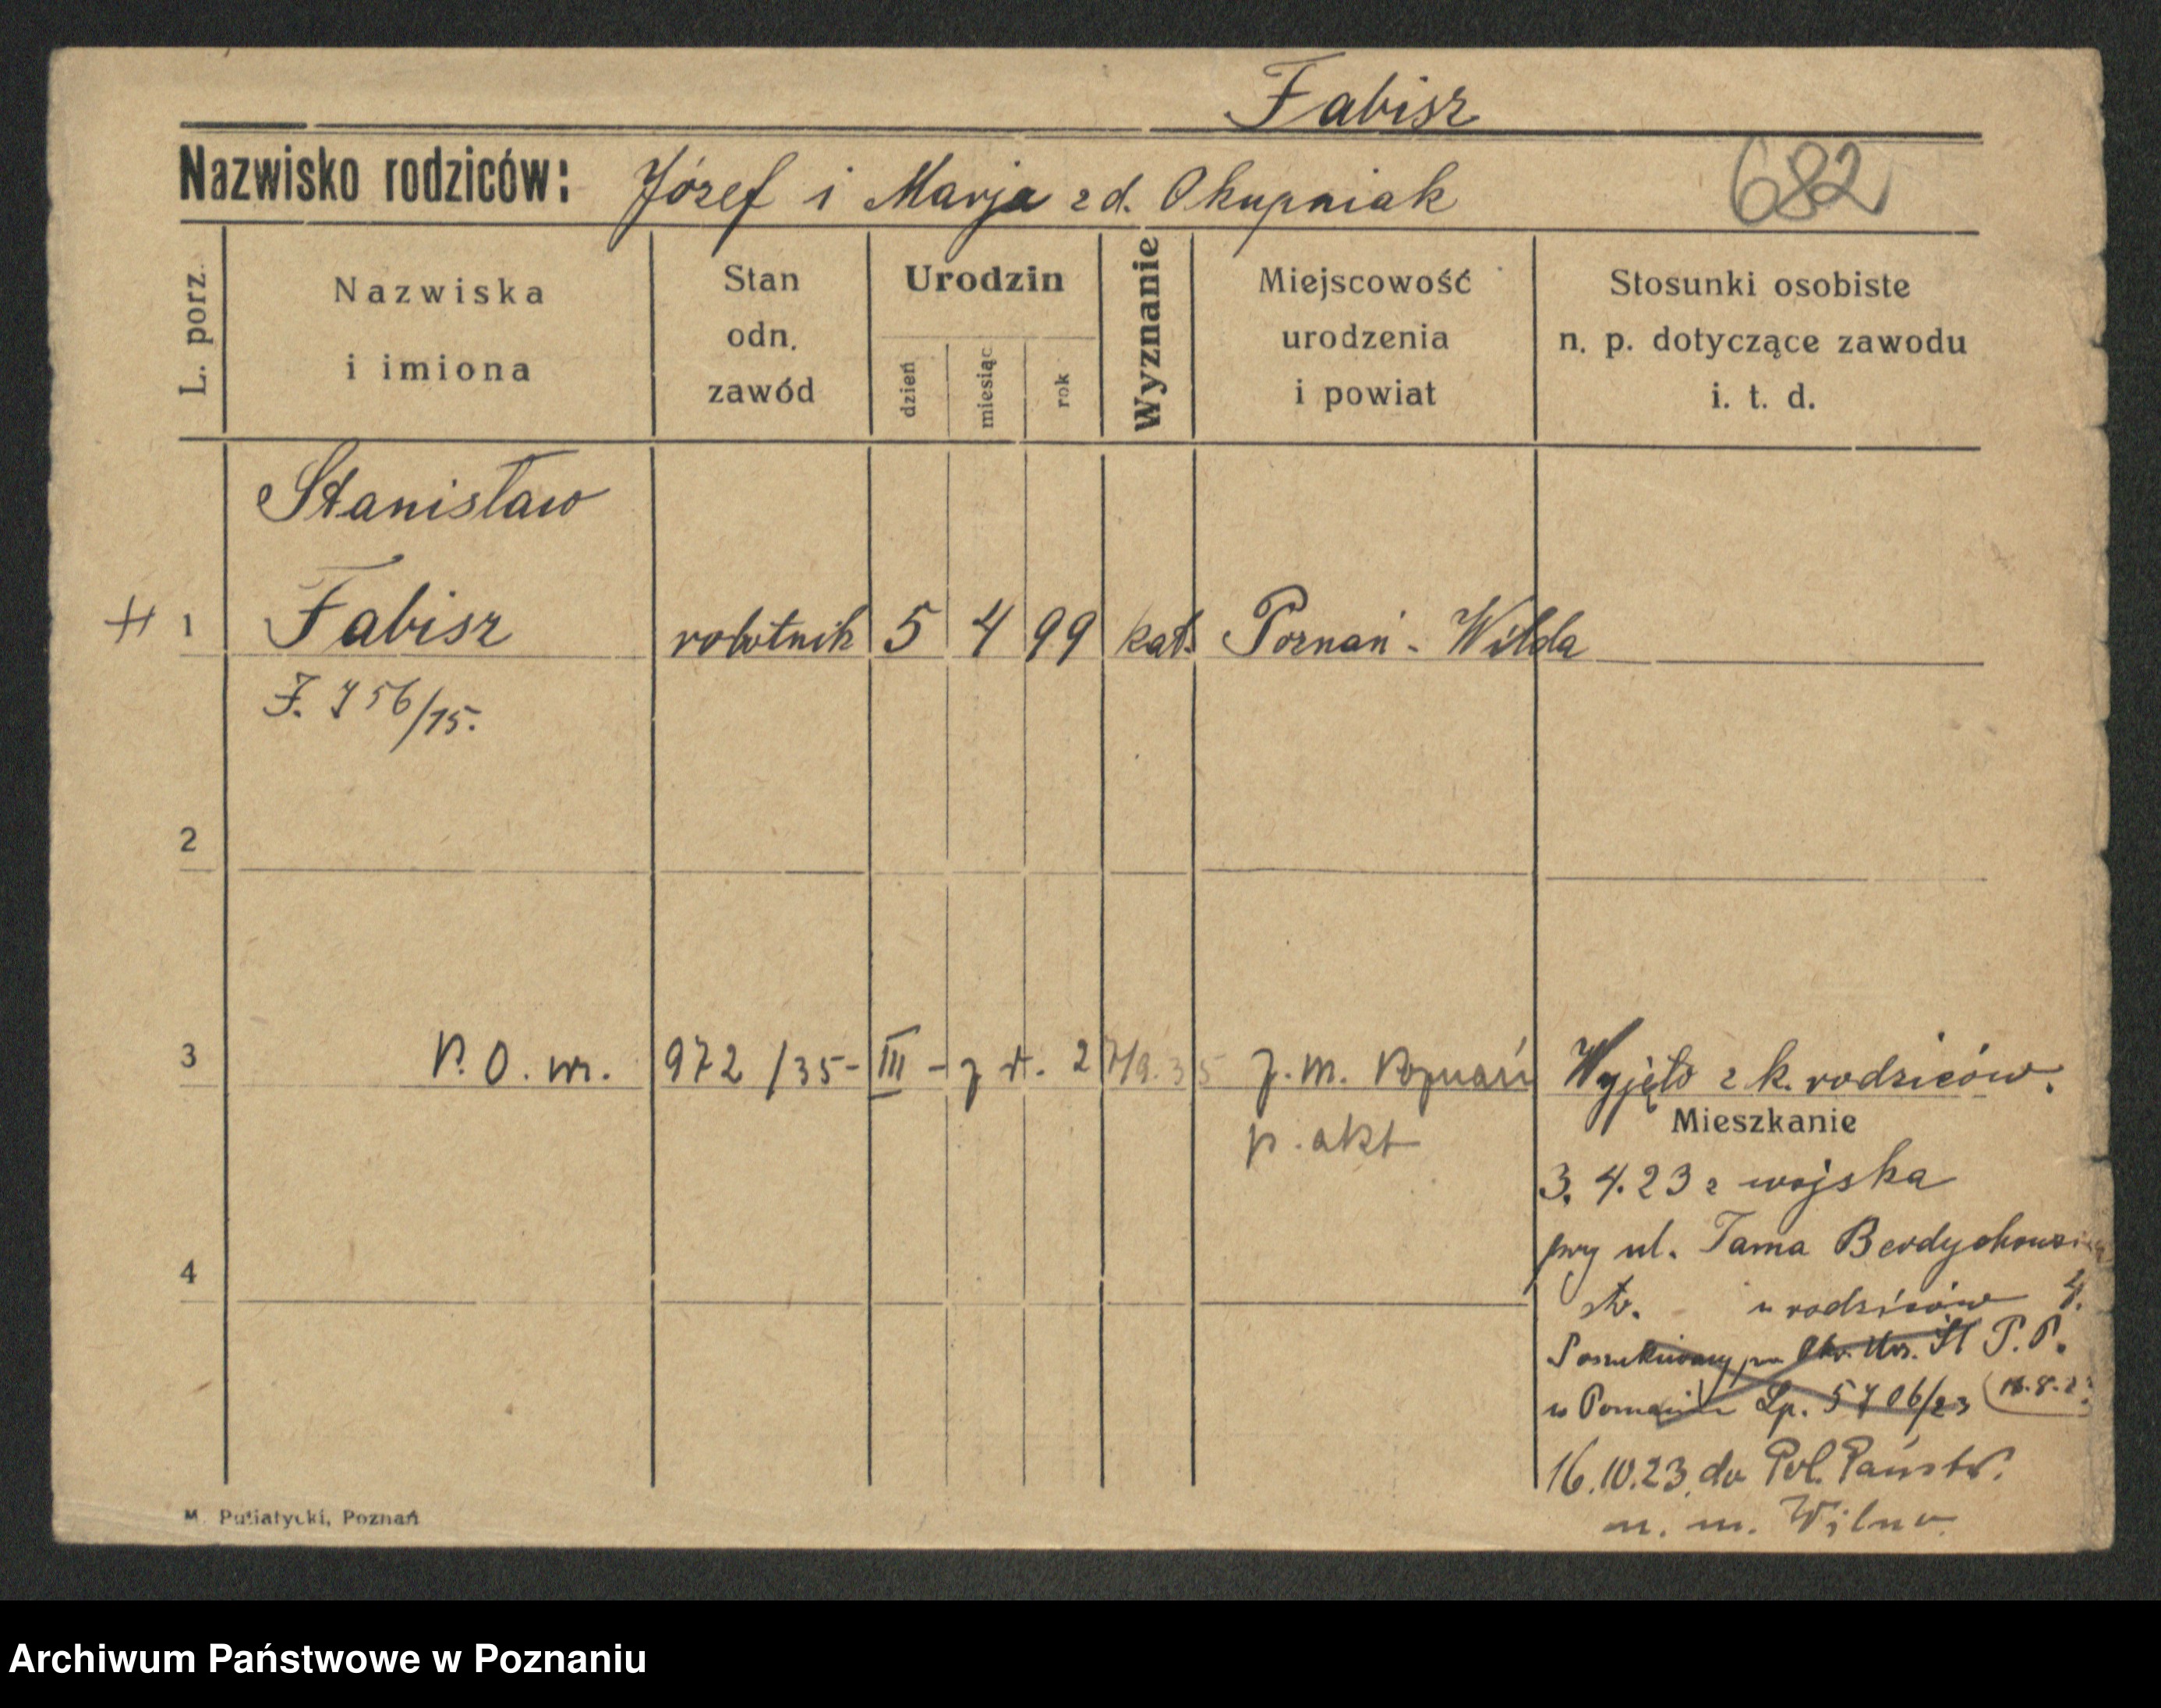 Fabisz
Nazwisko rodziców: Józef i Marja z d. Okupniak
682
L. porz.
Nazwiska
i imiona
Stan
odn.
zawód
Urodzin
dzień
miesiąc
rok
Wyznanie
Miejscowość
urodzenia
i powiat
Stosunki osobiste
n. p. dotyczące zawodu
i. t. d.
Stanisław
1 Fabisz robotnik 5 4 99 kat. Poznań - Wilda
756/15.
2
3 P. O. w. 972/35 - III - z d. 27/9.35 Z. m. Poznań Wyjęto z k. rodziców.
p. akt
Mieszkanie
3. 4. 23 z wojska
przy ul. Tama Berdychowska
4
str. u rodziców 4.
Poszukiwany P. P.
w Poznaniu Lp. 5706/23
16.10.23. do Pol. Państw.
m. Wilno
M. Putiatycki, Poznań
Archiwum Państwowe w Poznaniu